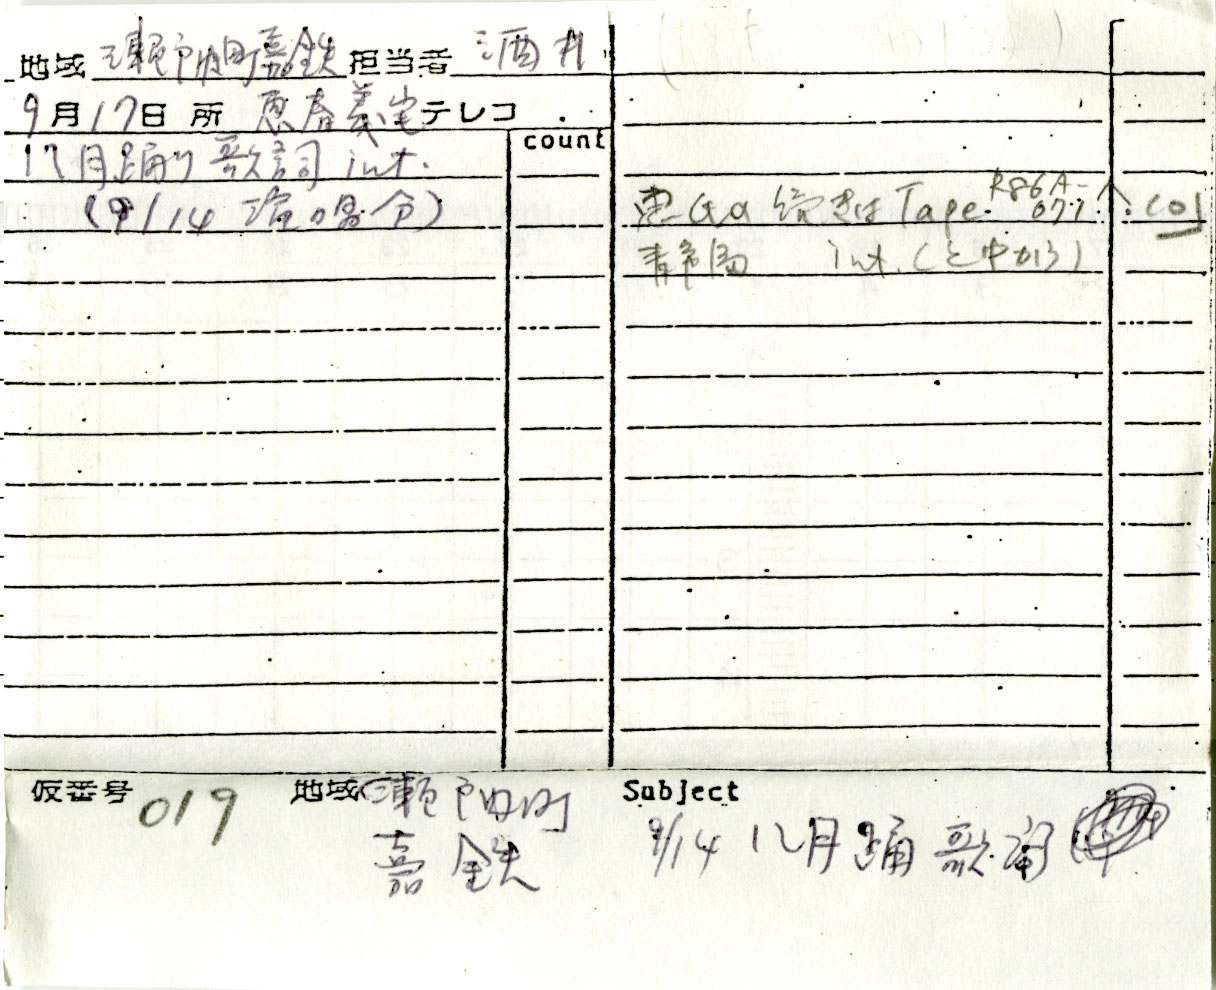 地域 瀬戸内町嘉鉄 担当者 酒井
9月17日 所 恵春義宅 テレコ
count
八月踊り 歌詞 int.
(9/14 演唱分)
恵 続きは Tape. R86A-071. A. C01
int. (と中から)
仮番号 019 地域 瀬戸内町
嘉鉄
Subject
9/14 八月踊 歌詞